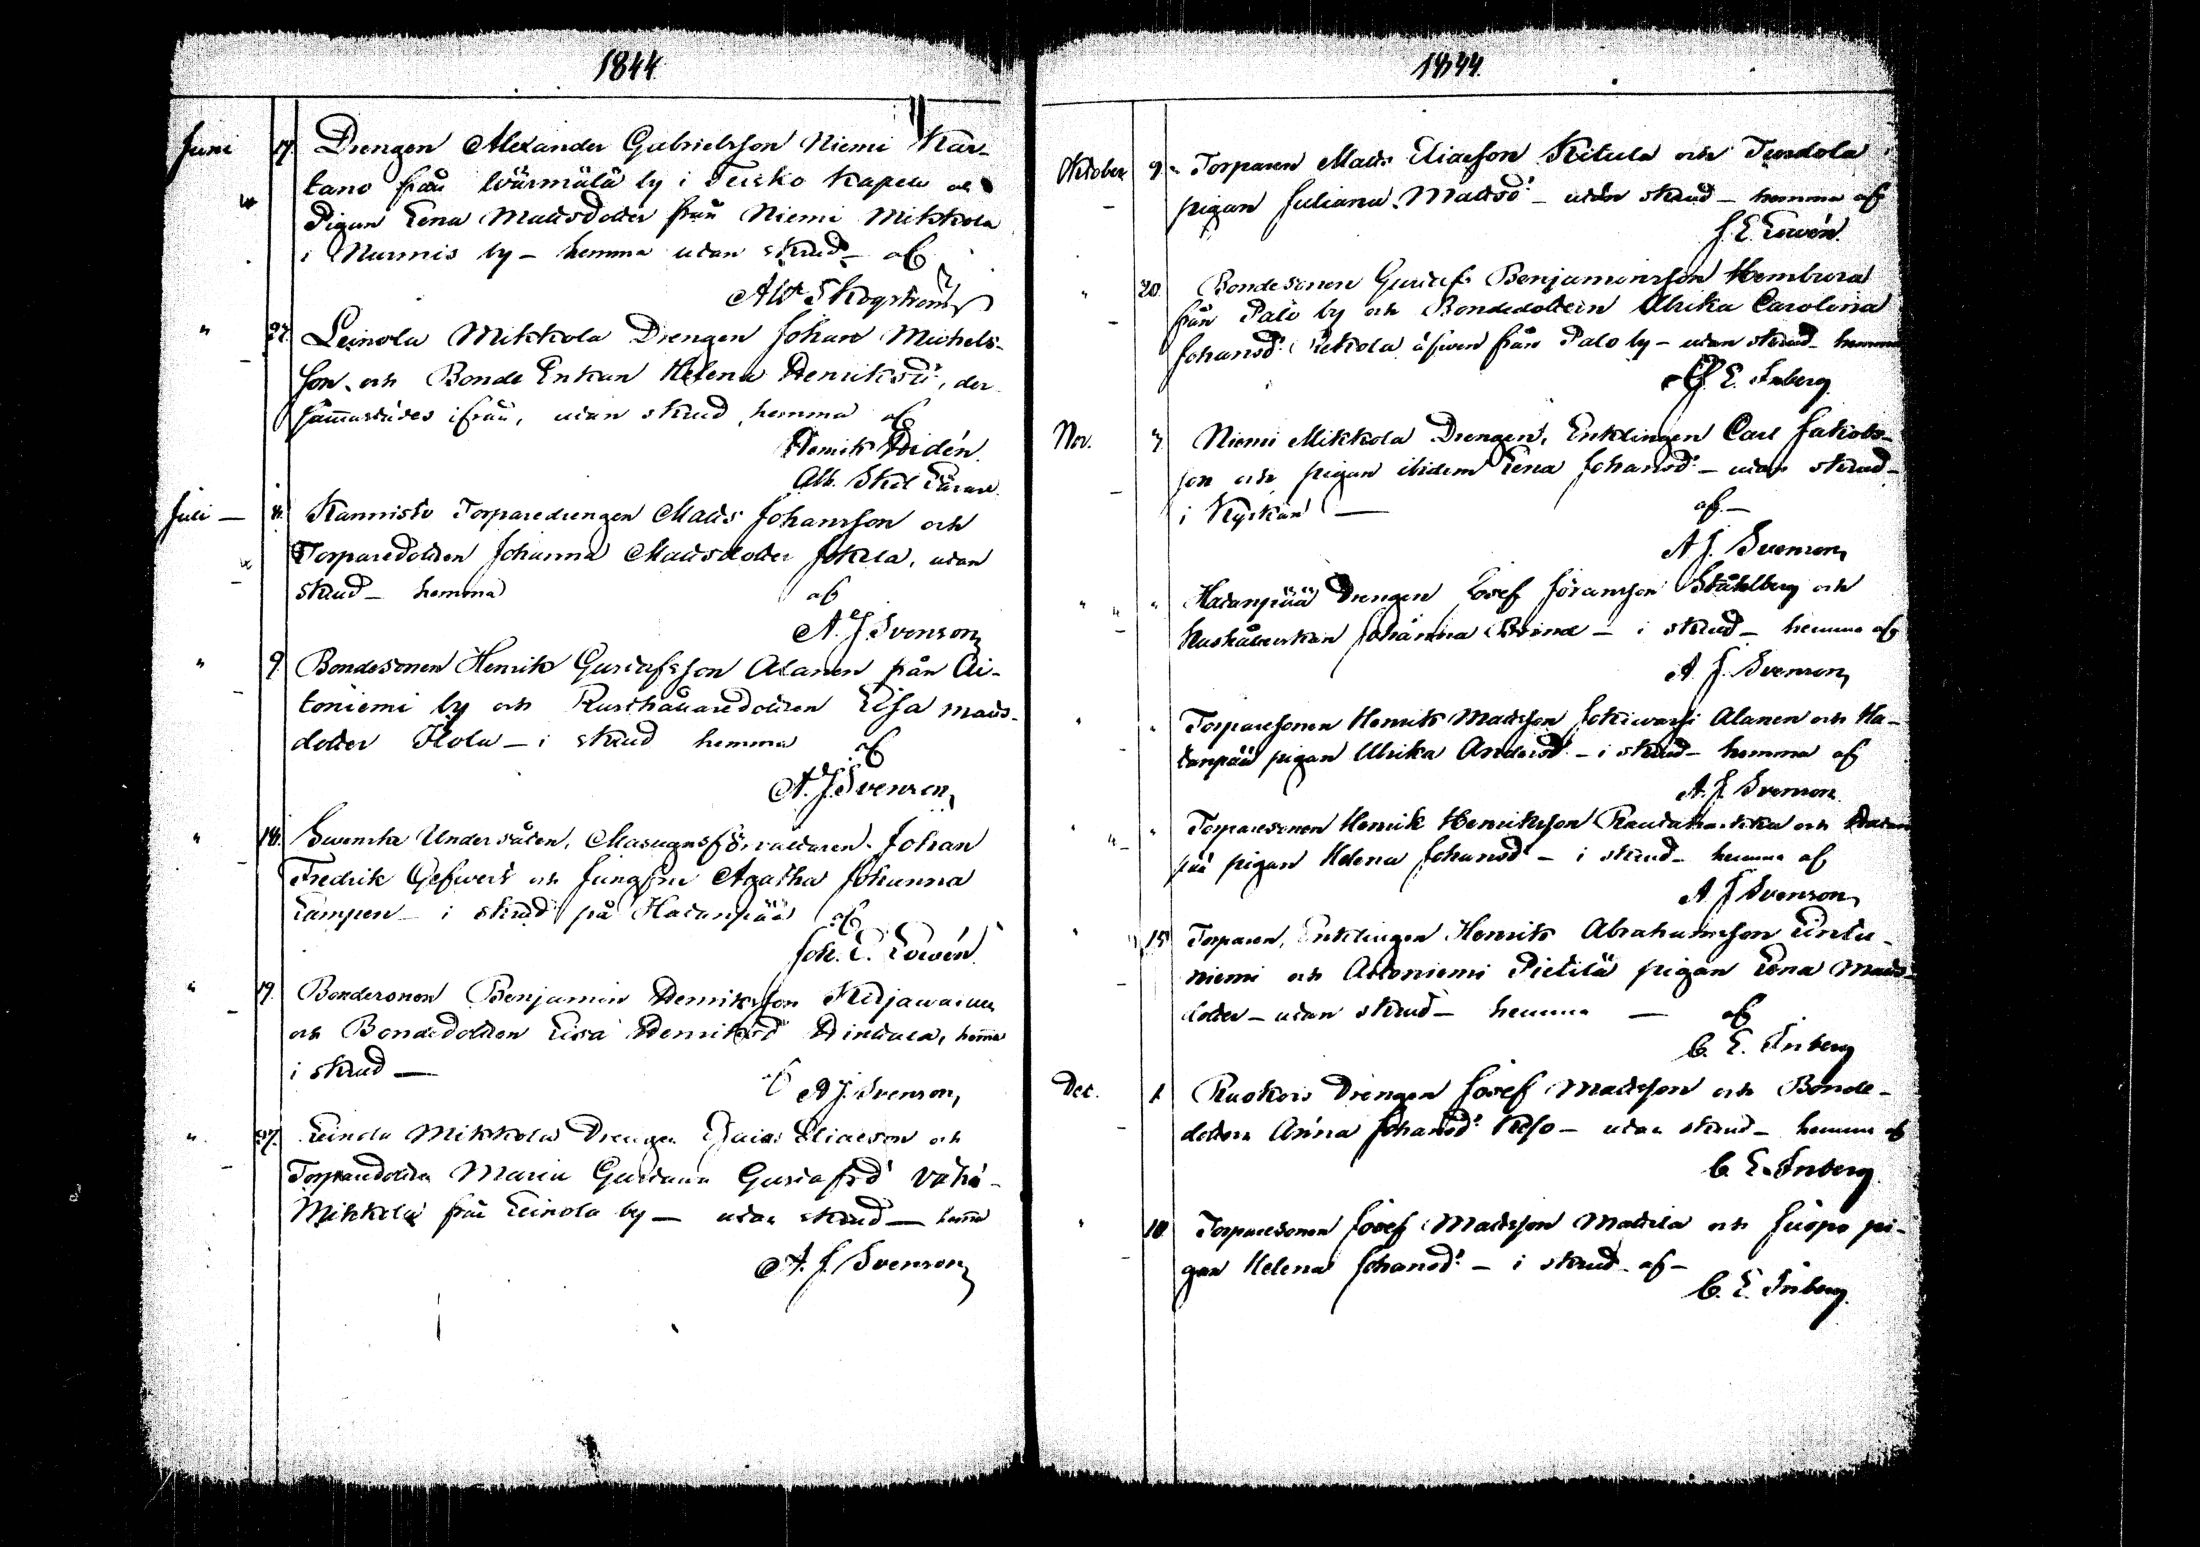 1844
Juni 17. Drengen Alexander Gabrielsson Niemi Kar-
tano från Wärmälä by i Teisko Kapell och
Pigan Lena Mattsdotter från Niemi Mikkola
i Nurmis by – hemma utan skrud – af
Skogström
" 27. Leinola Mikkola Drengen Johan Michels-
son och Bonde Enkan Helena Henriksd:r, der
sammastädes ifrån, utan skrud, hemma af
Henrik Hidén.
Juli – Kannisto Torparedrengen Matts Johansson och
Torparedottren Johanna Mattsdotter Jokela, utan
skrud – hemma af
A. J. Svenson
" 9. Bondesonen Henrik Gustafsson Alanen från Ai-
toniemi by och Rusthållaredottren Lisa Matts-
dotter Hola – i skrud hemma af
A. J. Svenson
" 18. Svenska Undersåten, Masugnsförvaltaren Johan
Fredrik Gefwert och Jungfru Agatha Johanna
Lampen – i skrud på Hatanpää af
Joh. E. Lowén
" 19. Bondesonen Benjamin Henriksson
och Bondedottren Lisa Henriksd:r, hemma
i skrud – af A J. Svenson
" 27. Leinola Mikkolas Drengen Esaias Eliasson och
Torparedottren Maria Gustava Gustafsd:r Vähä-
Mikkola från Leinola by – utan skrud – hemma
A. J. Svenson
1844.
Oktober 9. Torparen Matts Eliasson Kitula och
pigan Juliana Mattsd:r – utan skrud – hemma af
J. E. Lowén.
" 20. Bondesonen Gustaf Benjaminsson
från Palo by och Bondedottern Ulrika Carolina
Johansd:r äfwen från Palo by – utan skrud – hemma
af C. E. Inberg.
Nov. 7. Niemi Mikkola Drengen, Enklingen Carl Jakobs-
son och pigan ibidem Lena Johansd:r – utan skrud –
i Kyrkan – af –
A J. Svenson
" " Hatanpää Drengen Josef Göransson Ståhlberg och
Hushållerskan Johanna – i skrud – hemma af
A. J. Svenson
" " Torparesonen Henrik Mattsson Jokiwarsi Alanen och Ha-
tanpää pigan Ulrika Andersd:r – i skrud – hemma af
A. J. Svenson
" " Torparesonen Henrik Henriksson och Hatan
pää pigan Helena Johansd:r – i skrud – hemma af
A J Svenson
" 15 Torparen, Enklingen Henrik Abrahamsson Lintu-
niemi och Aitoniemi Pietilä pigan Lena Matts-
dotter – utan skrud – hemma – af
C. E. Inberg
Dec. 1. Ruokois Drengen Josef Mattsson och Bonde-
dottern Anna Johansd:r – utan skrud – hemma af
C. E. Inberg.
" 10. Torparesonen Josef Mattsson Mattila och Juopo pi-
gan Helena Johansd:r – i skrud – af –
C. E. Inberg.